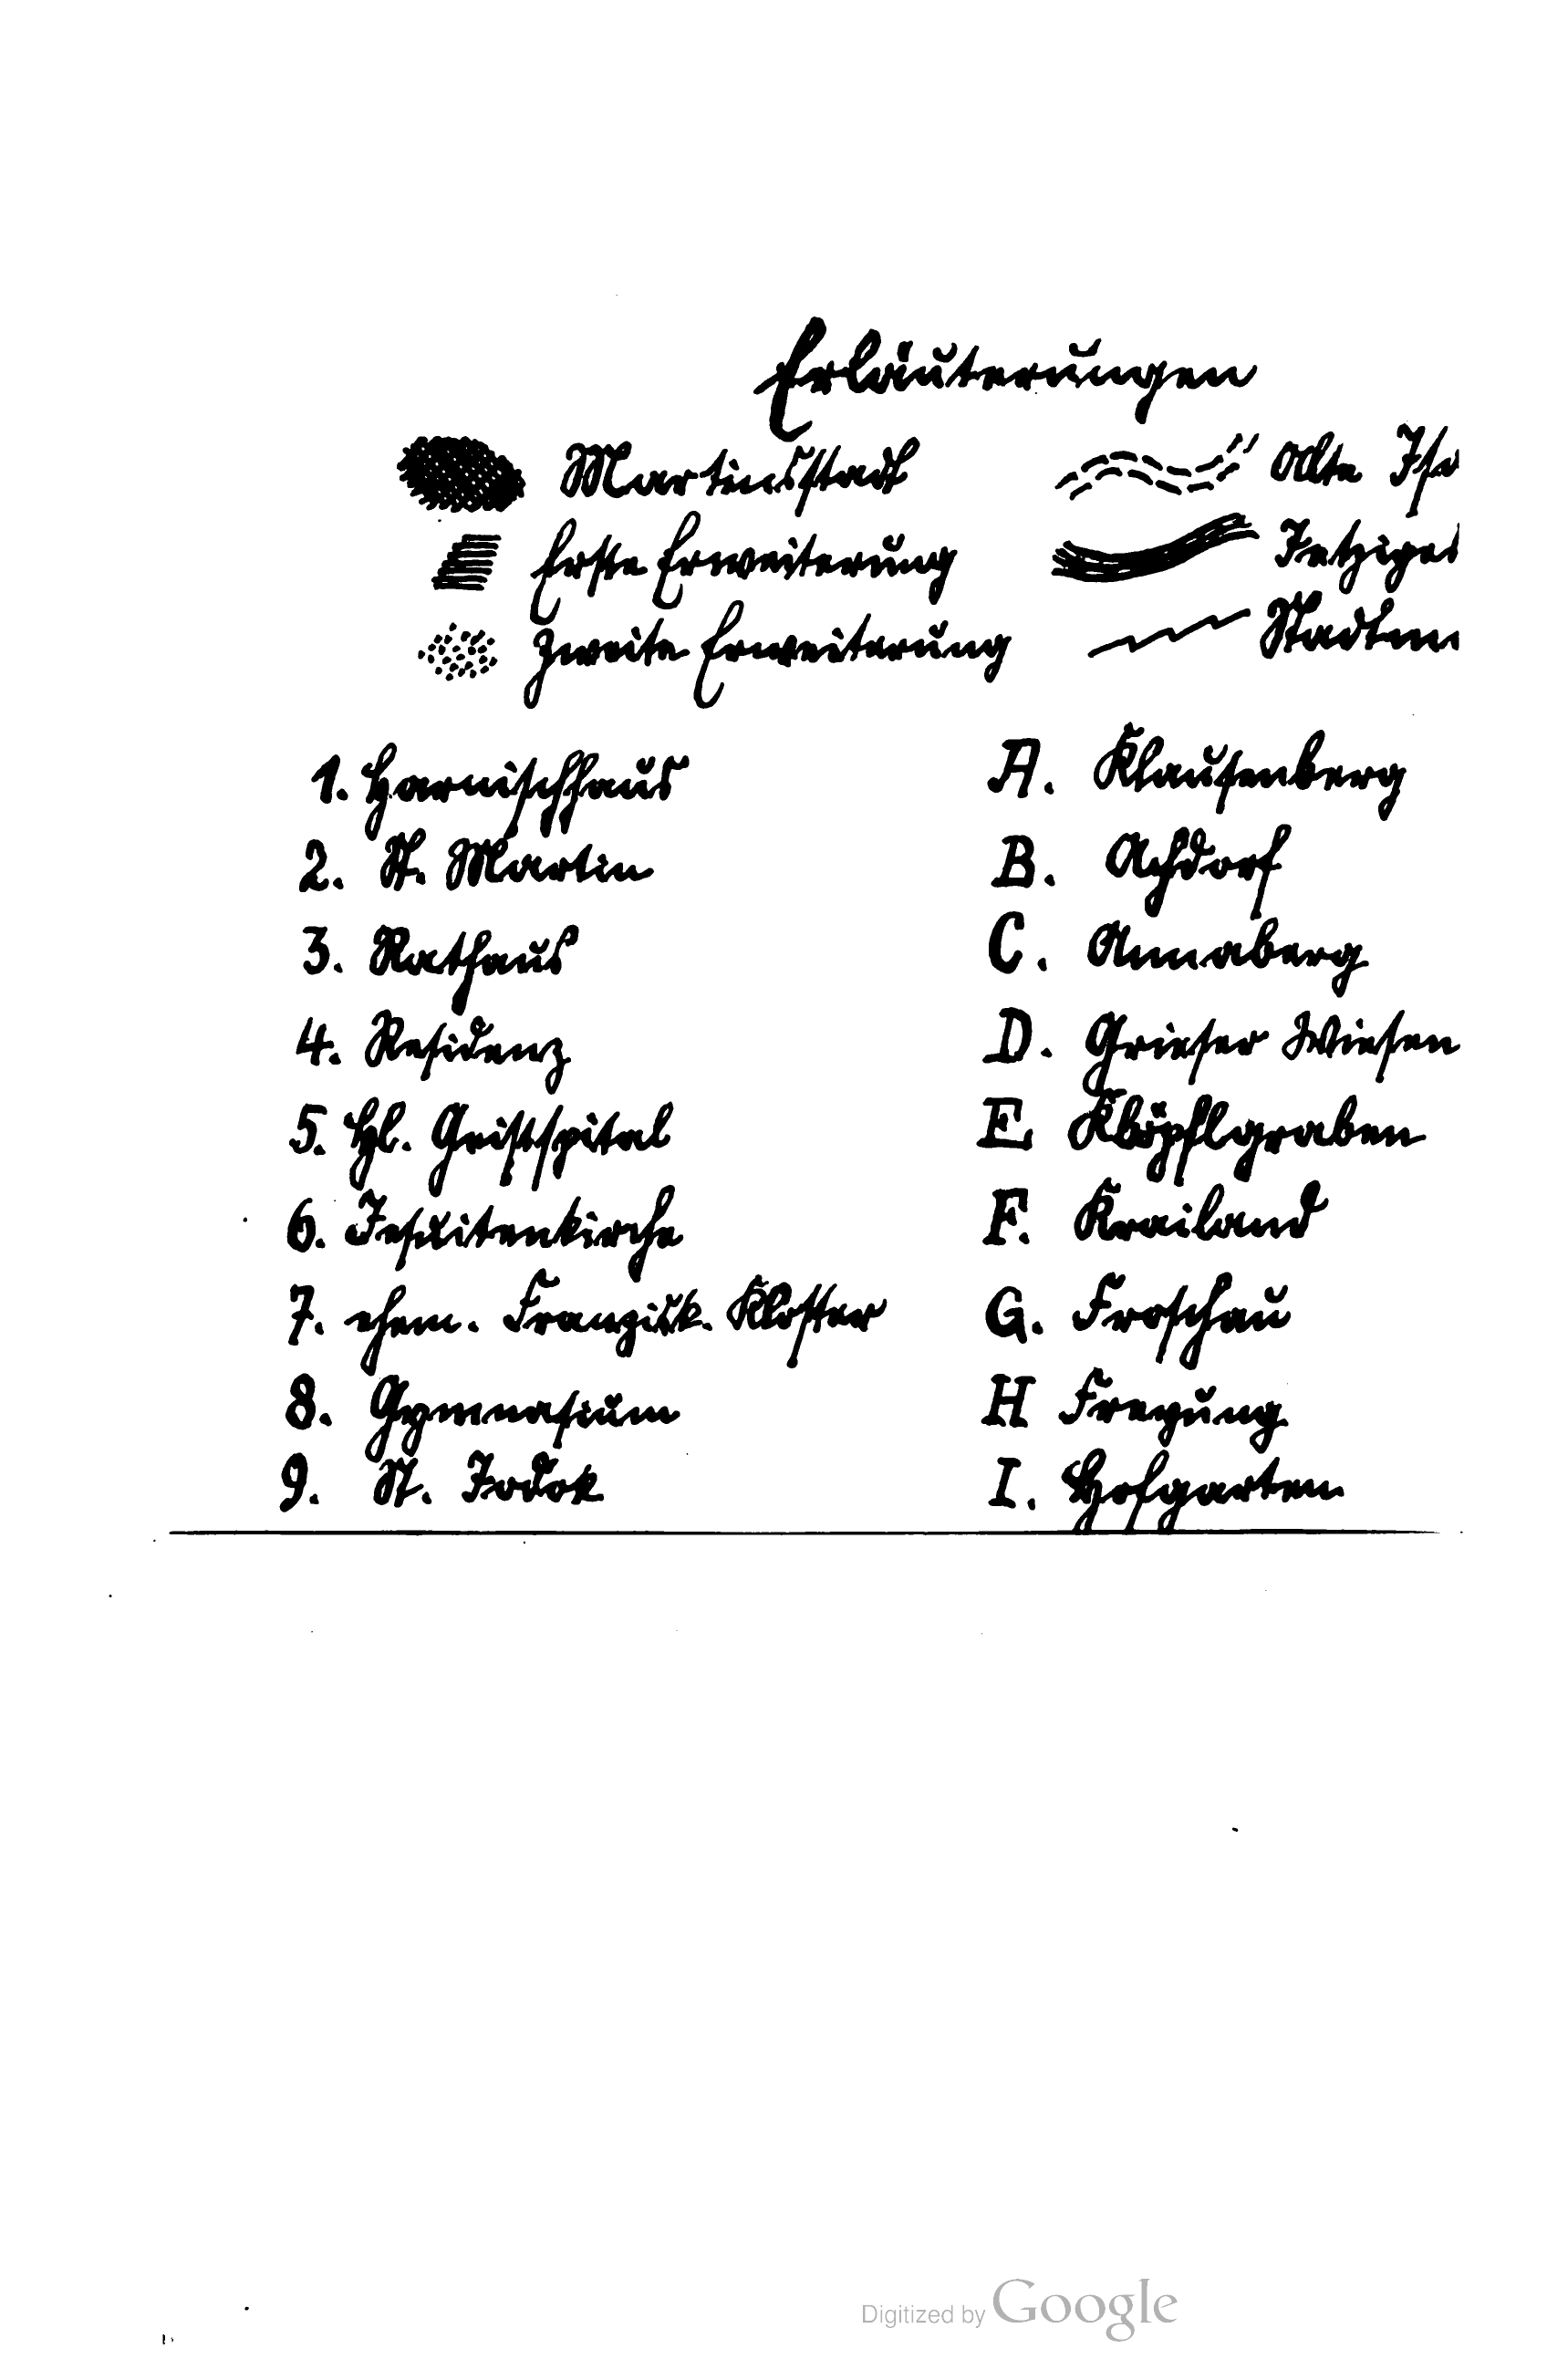 Erläuterungen
Martinsstadt
Alte Isa
Erste Erweiterung
Jetziges
Zweite Erweiterung
Stadtm
1. Harnischhaus
2. St. Martin
3. Rathaus
4. Residenz
5. Hl. Geistspital
6. Jesuitenkirche
7. ehem. Franzisk. Kloster
8. Gymnasium
9. St. Jodok
A. Klausenberg
B. Achdorf
C. Annaberg
D. Grieser Wiesen
E Klöpflgraben
F. Krailand
G. Froschau
H Freyung
I. Hofgarten
Digitized by Google